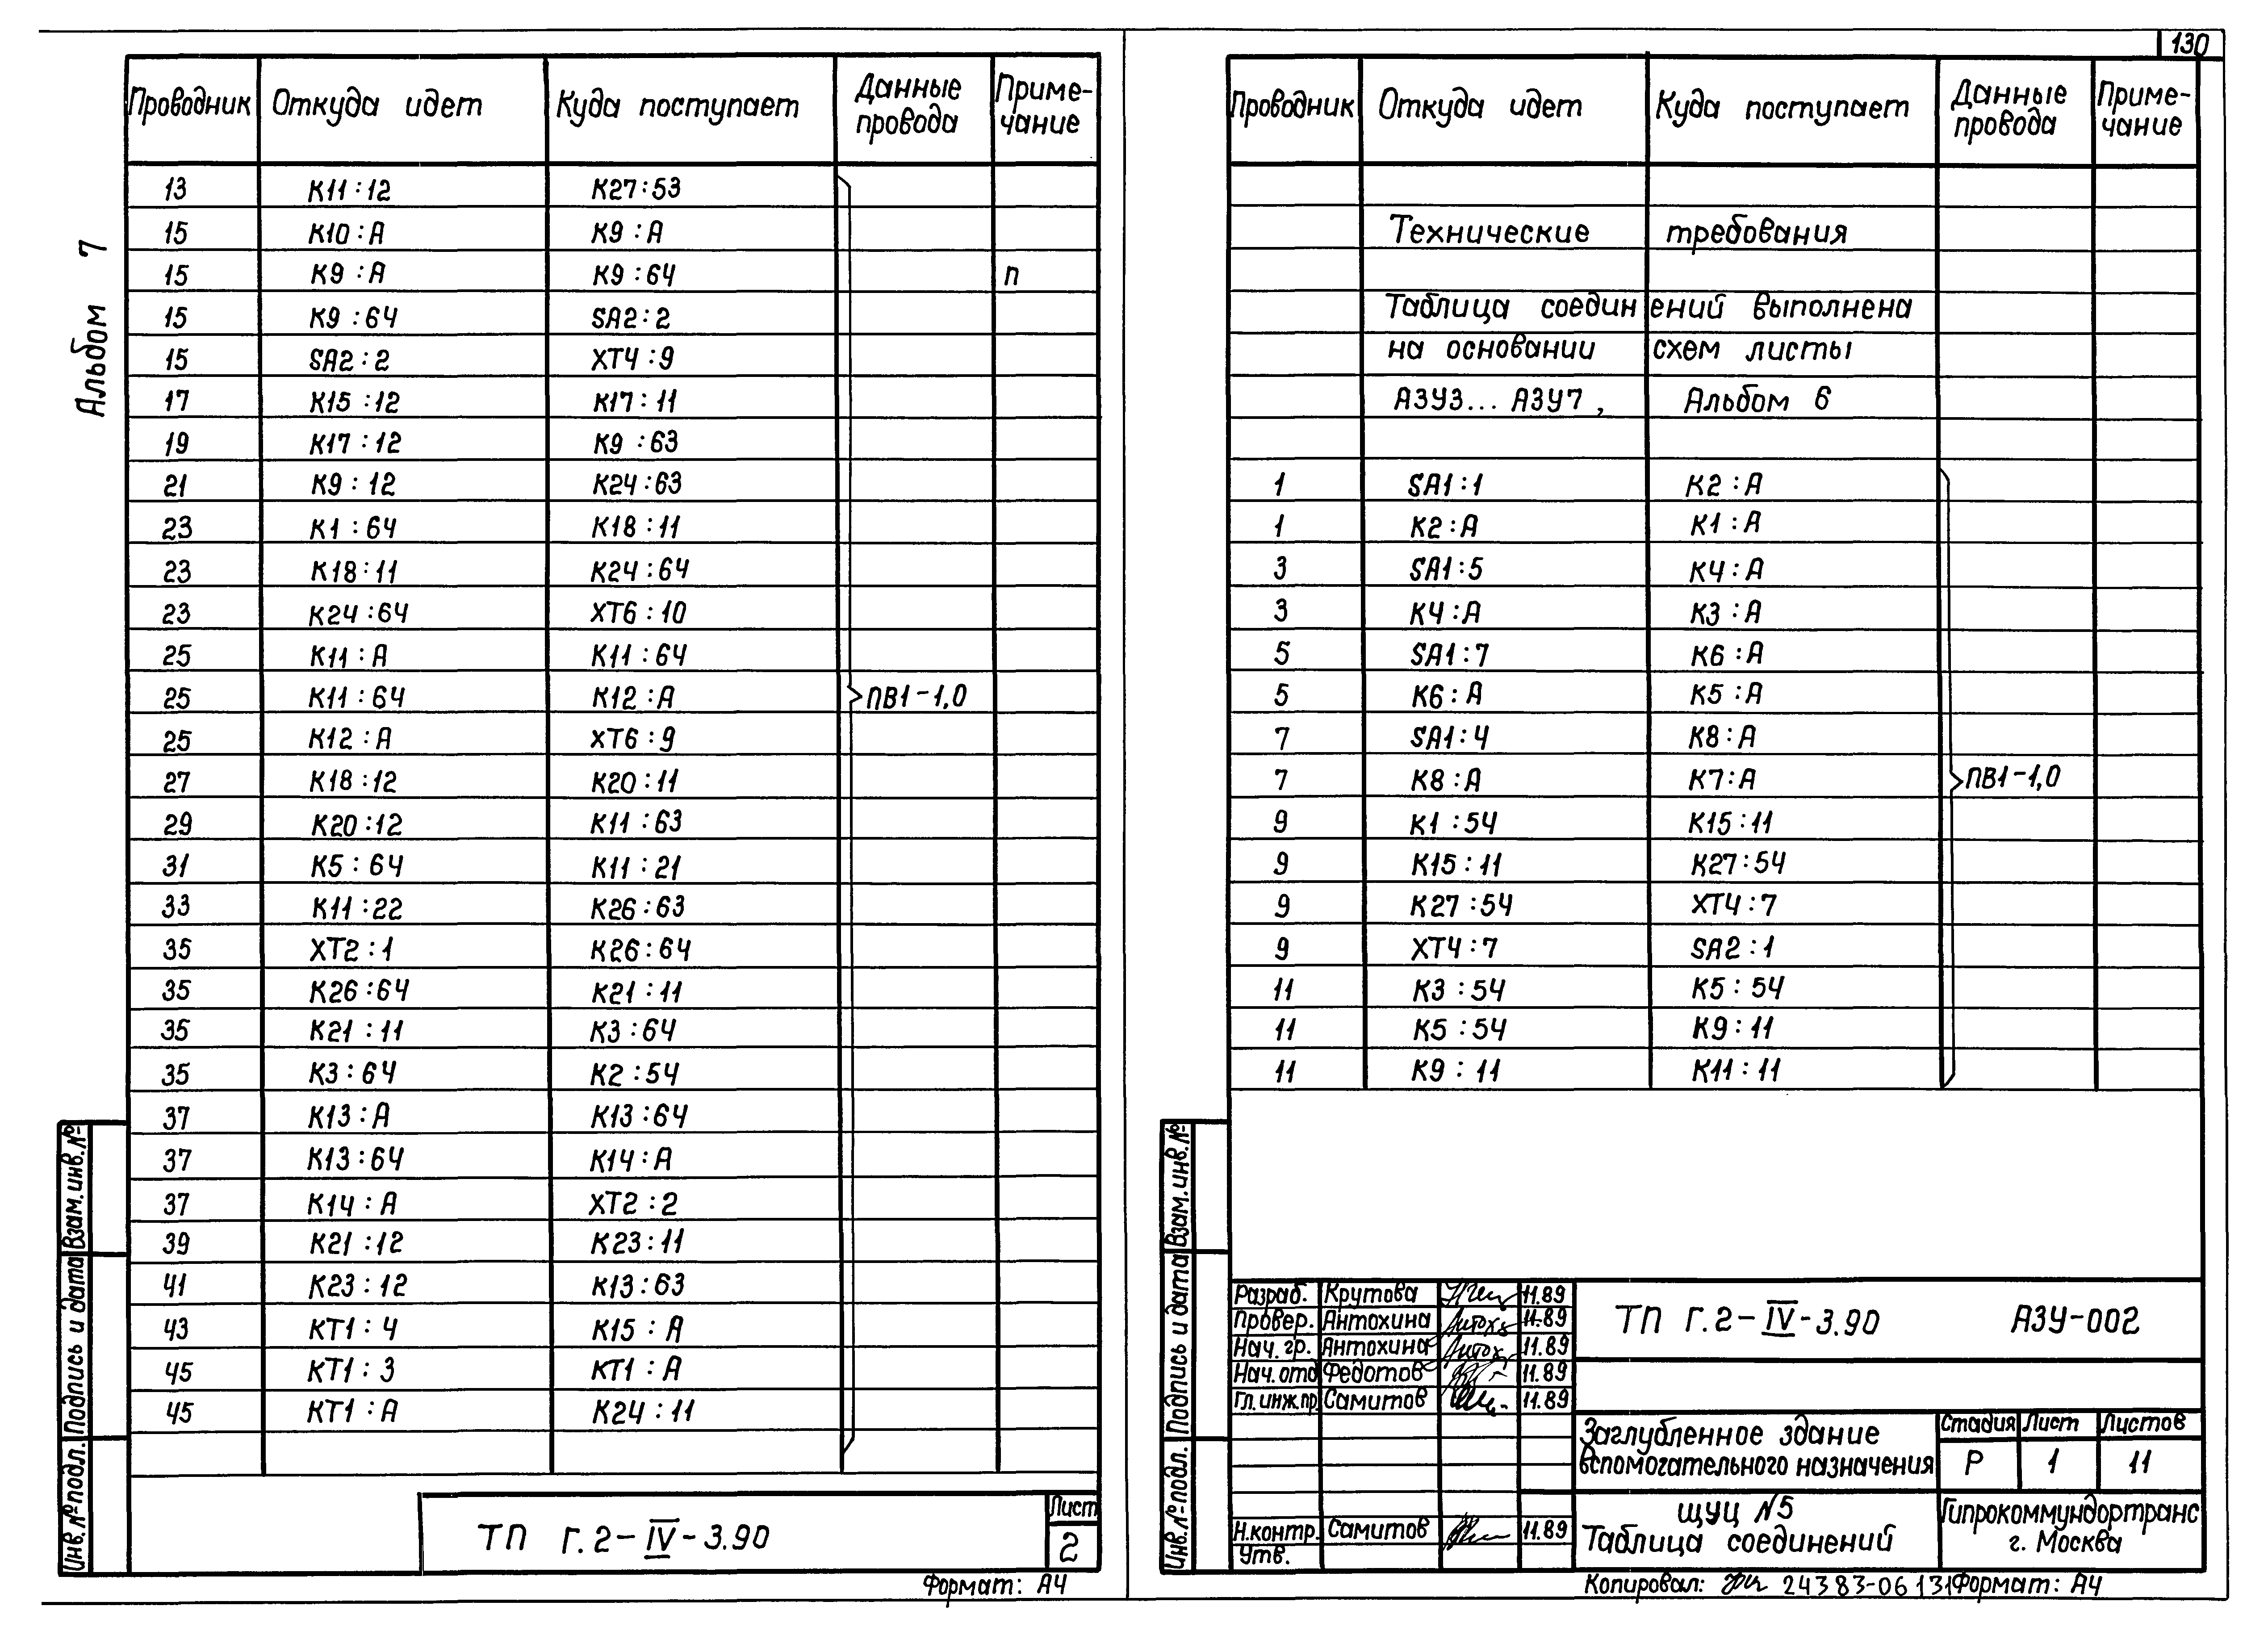 130
Альбом 7
Проводник Откуда идет Куда поступает Данные провода Приме-чание
13 К11:12 К27:53
15 К10:А К9:А
15 К9:А К9:64 п
15 К9:64 SA2:2
15 SA2:2 ХТ4:9
17 К15:12 К17:11
19 К17:12 К9:63
21 К9:12 К24:63
23 К1:64 К18:11
23 К18:11 К24:64
23 К24:64 ХТ6:10
25 К11:А К11:64
25 К11:64 К12:А ПВ1-1,0
25 К12:А ХТ6:9
27 К18:12 К20:11
29 К20:12 К11:63
31 К5:64 К11:21
33 К11:22 К26:63
35 ХТ2:1 К26:64
35 К26:64 К21:11
35 К21:11 К3:64
35 К3:64 К2:54
37 К13:А К13:64
37 К13:64 К14:А
37 К14:А ХТ2:2
39 К21:12 К23:11
41 К23:12 К13:63
43 КТ1:4 К15:А
45 КТ1:3 КТ1:А
45 КТ1:А К24:11
Инв.№подл. Подпись и дата Взам.инв.№
ТП Г.2-IV-3.90
Лист
2
Формат: А4
Проводник Откуда идет Куда поступает Данные провода Приме-чание
Технические требования
Таблица соединений выполнена
на основании схем листы
АЗУ3...АЗУ7, Альбом 6
1 SA1:1 К2:А
1 К2:А К1:А
3 SA1:5 К4:А
3 К4:А К3:А
5 SA1:7 К6:А
5 К6:А К5:А
7 SA1:4 К8:А
7 К8:А К7:А ПВ1-1,0
9 К1:54 К15:11
9 К15:11 К27:54
9 К27:54 ХТ4:7
9 ХТ4:7 SA2:1
11 К3:54 К5:54
11 К5:54 К9:11
11 К9:11 К11:11
Инв.№подл. Подпись и дата Взам.инв.№
Разраб. Крутова 11.89
Провер. Антохина 11.89
Нач.гр. Антохина 11.89
Нач.отд Федотов 11.89
Гл.инж.пр. Самитов 11.89
Н.контр. Самитов 11.89
Утв.
ТП Г.2-IV-3.90 АЗУ-002
Заглубленное здание
вспомогательного назначения
Стадия Лист Листов
Р 1 11
ЩУЦ №5
Таблица соединений
Гипрокоммундортранс
г. Москва
Копировал: 24383-06 131 Формат: А4